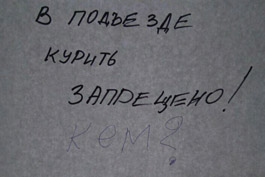 В ПОДЪЕЗДЕ
КУРИТЬ
ЗАПРЕЩЕНО!
кем?